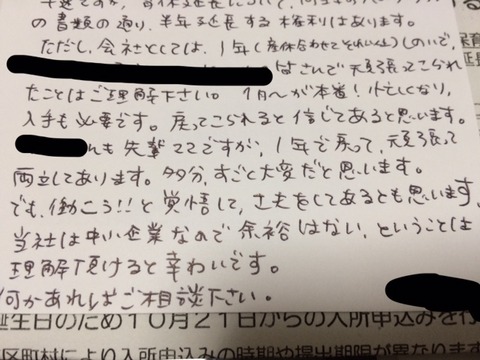 の書類の通り、半年延長する権利はあります。
ただし、会社としては、1年(産休合わせてそれ以上)のいで、
はさんで頑張ってこられ
たことはご理解下さい。1月〜が本番!忙しくなり、
人手も必要です。戻ってこられると信じてあると思います。
んも先輩ママですが、1年で戻って、頑張って
両立してあります。多分、すごと大変だと思います。
でも、働こう!!と覚悟して、工夫をしてあるとも思います。
当社は中小企業なので余裕はない、ということは
理解頂けると幸わいです。
何かあればご相談下さい。
保育
延長
誕生日のため10月21日からの入所申込みを行
区町村により入所申込みの時期や提出期限が異なります